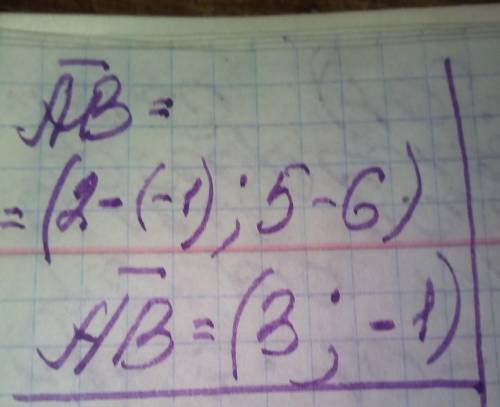 A̅B̅ =
= (2 - (-1); 5 - 6)
A̅B̅ = (3; -1)